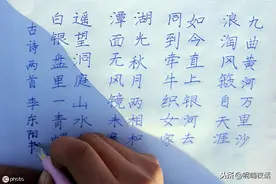 九曲黄河万里沙
浪淘风簸自天涯
如今直上银河去
同到牵牛织女家
湖光秋月两相和
潭面无风镜未
遥望洞庭山水
白银盘里一青
古诗两首李东阳书